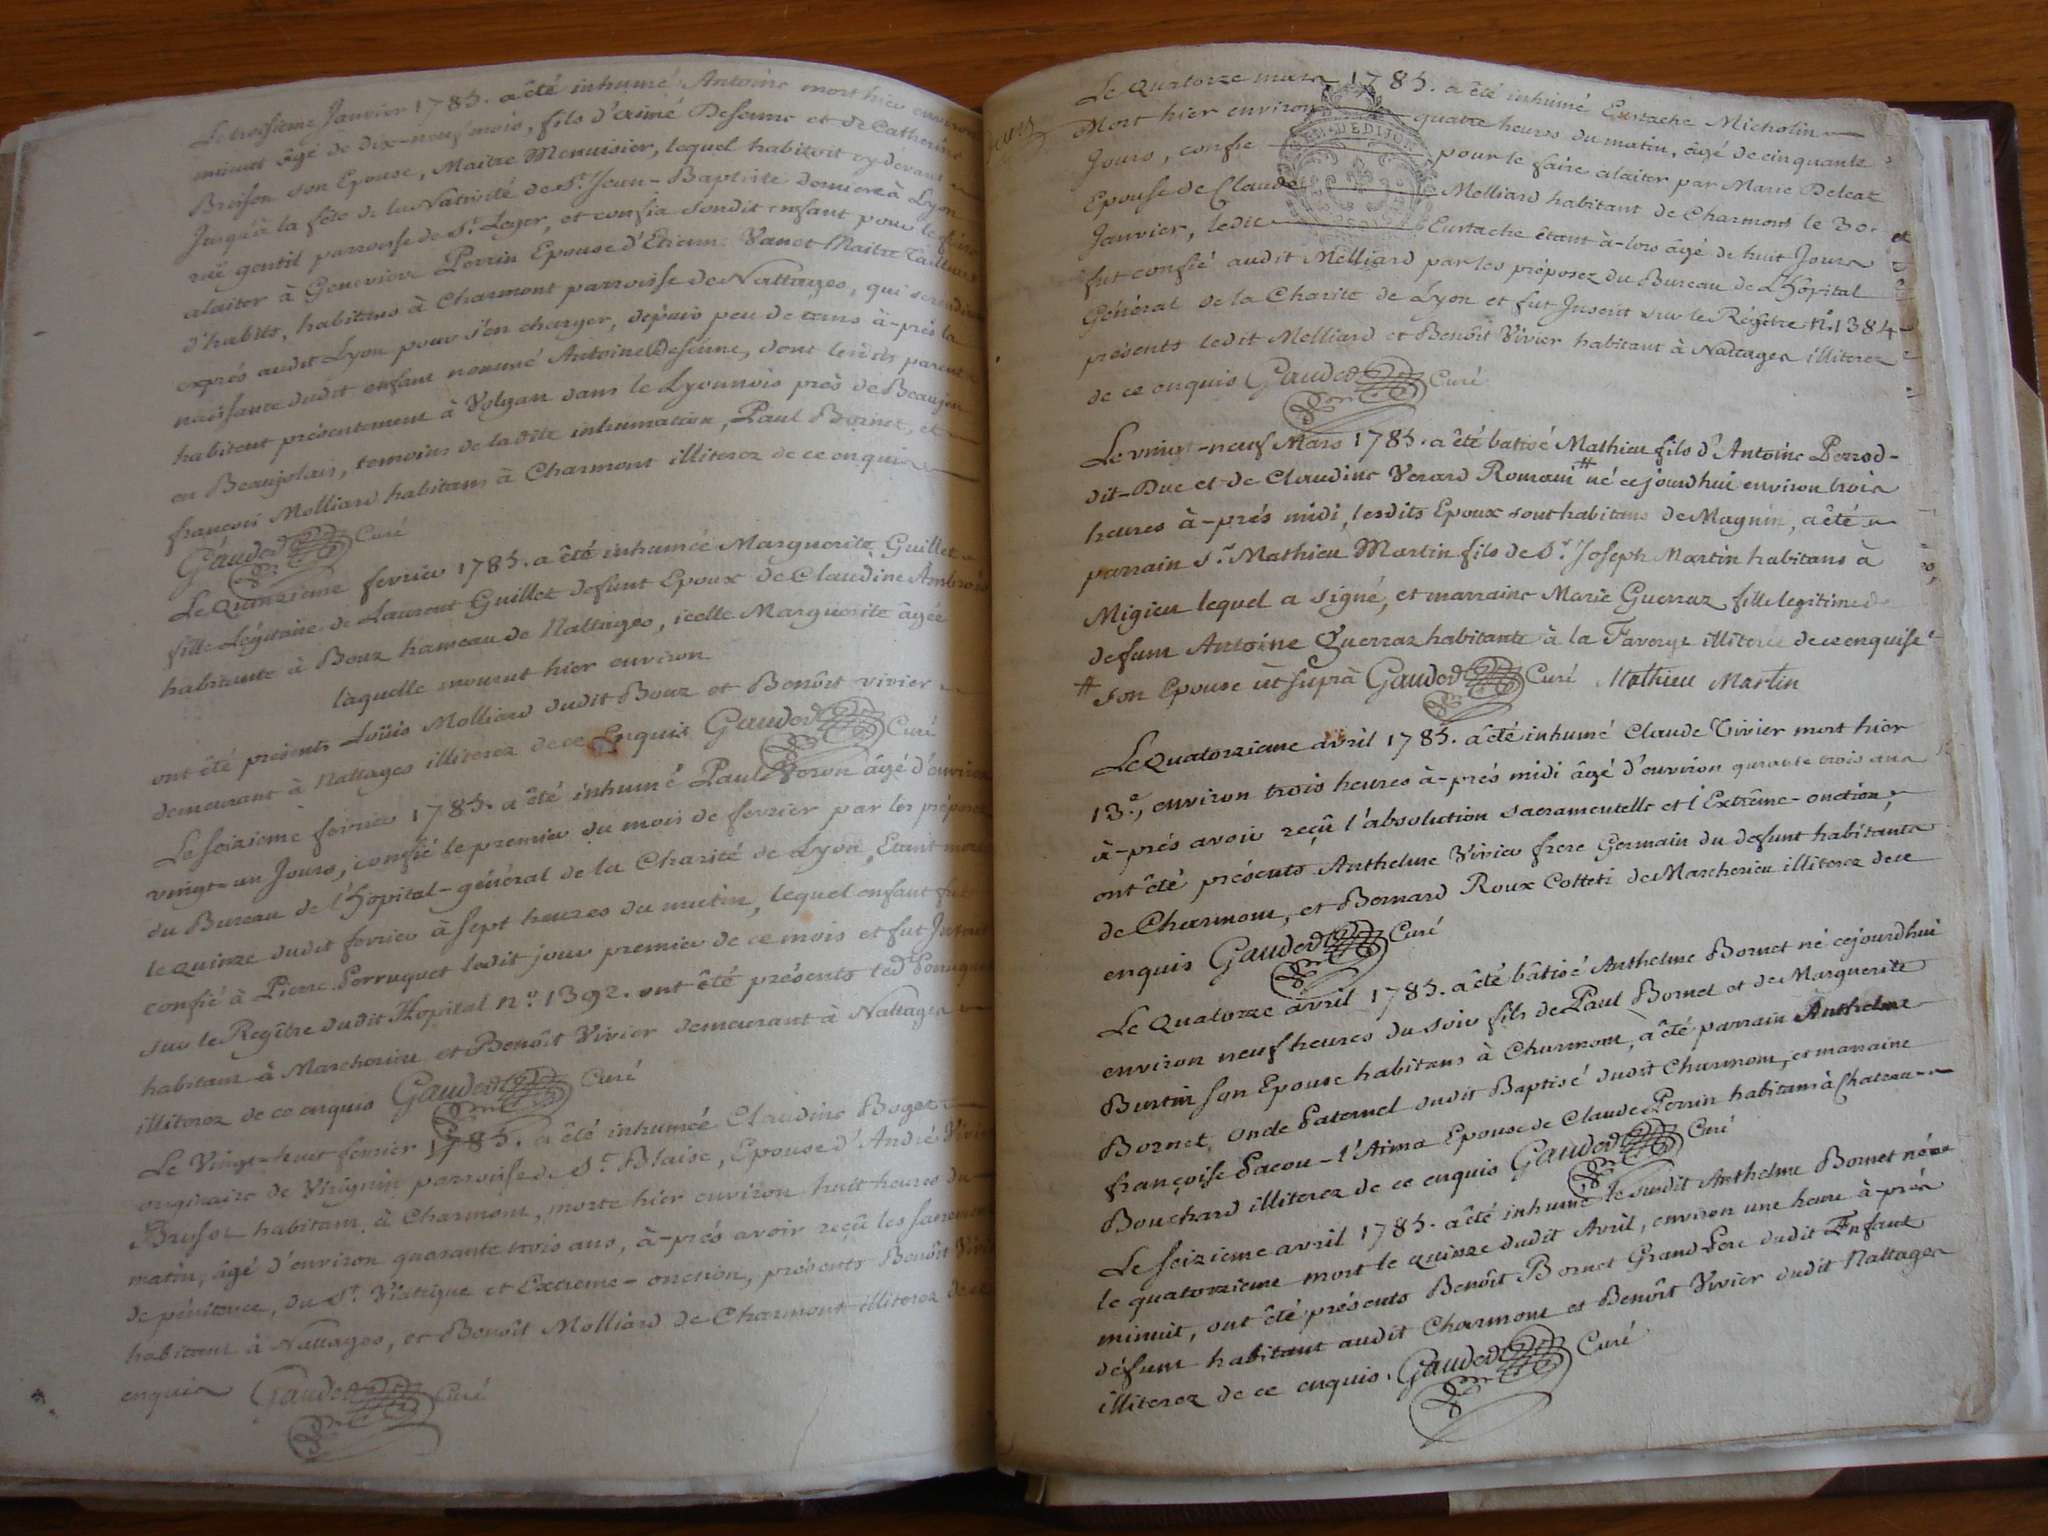 Le troisieme Janvier 1785. a été inhumé Antoine mort hier environ
minuit âgé de dix-neuf mois, fils d'aimé Desenne et de Catherine
Brisson son Epouse, Maitre Menuisier, lequel habitoit cy devant
Jusqu'à la fête de la Nativité de St. Jean-Baptiste derniere à Lyon
rüe gentil parroisse de St. Leger, et confia sondit enfant pour le faire
alaiter à Genevieve Perrin Epouse d'Etienne Vanet Maitre Tailleur
d'habits, habitans à Charmont parroisse de Nattages, qui
exprés audit Lyon pour s'en charger, depuis peu de tems à-prés la
naissance dudit enfant nommé Antoine Desenne, dont lesdits parents
habitent présentement à Volgan dans le Lyonnois près de Beaujeu
en Beaujolais, temoins de ladite inhumation, Paul Bornet, et
françois Molliard habitans à Charmont illiterez de ce enquis
Gaudet Curé
Le Quinzieme fevrier 1785. a été inhumée Marguerite Guillet
fille Légitime de Laurent Guillet defunt Epoux de Claudine Ambrois
habitante à Bouz hameau de Nattages, icelle Marguerite âgée
laquelle mourut hier environ
ont été présents Loüis Molliard dudit Bouz et Benôit vivier
demeurant à Nattages illiterez de ce Enquis Gaudet Curé
Le seizieme fevrier 1785. a été inhumé Paul Veron âgé d'environ
vingt-un Jours, confié le premier du mois de fevrier par les préposez
du Bureau de l'hopital-général de la Charité de Lyon, Etant mort
le quinze dudit fevrier à sept heures du matin, lequel enfant fut
confié à Pierre Perruquet ledit jour premier de ce mois et fut Inscrit
sur le Regître dudit Hopital n.º 1392. ont été présents led. Perruquet
habitant à Marcherieu et Benôit Vivier demeurant à Nattages
illiterez de ce enquis Gaudet Curé
Le Vingt-huit fevrier 1785. a été inhumée Claudine Boget
originaire de Virignin parroisse de St. Blaise, Epouse d'André Vivier
Brufor habitant à Charmont, morte hier environ huit heures du
matin, âgé d'environ quarante trois ans, à-prés avoir reçû les sacremens
de pénitence, du St. Viatique et Extreme-onction, présents Benôit Vivier
habitant à Nattages, et Benôit Molliard de Charmont illiterez de ce
enquis Gaudet Curé
Le Quatorze mars 1785. a été inhumé Eustache Micholin
Mort hier environ quatre heures du matin, âgé de cinquante
Jours, confié pour le faire alaiter par Marie Deleat
Epouse de Claude Melliard habitant de Charmont le 30.
Janvier, ledit Eustache étant à-lors âgé de huit Jours
fut confié audit Melliard par les préposez du Bureau de L'hôpital
Général de la Charité de Lyon et fut Inscrit sur le Régître n.º 1384
présents ledit Melliard et Benôit Vivier habitant à Nattages illiterez
de ce enquis Gaudet Curé
Le vingt-neuf Mars 1785. a été batisé Mathieu fils d'Antoine Perrod-
dit-Duc et de Claudine Verard Romain # né cejourdhui environ trois
heures à-prés midi, lesdits Epoux sont habitans de Magnin, a été
parrain Sr. Mathieu Martin fils de Sr. Joseph Martin habitans à
Migieu lequel a signé, et marraine Marie Guerraz fille legitime de
defunt Antoine Guerraz habitante à la Faverge illiterée de ce enquise
# son Epouse ùt suprà Gaudet Curé Mathieu Martin
Le Quatorzieme avril 1785. a été inhumé Claude Vivier mort hier
13.e, environ trois heures à-prés midi âgé d'environ quarante trois ans
à-prés avoir reçû l'absolution sacramentelle et l'Extrême-onction,
ont été présents Anthelme Vivier frere Germain du defunt habitants
de Charmont, et Bernard Roux Cotteti de Marcherieu illiterez de ce
enquis Gaudet Curé
Le Quatorze avril 1785. a été bâtisé Anthelme Bornet né cejourdhui
environ neuf heures du soir fils de Paul Bornet et de Marguerite
Burtin son Epouse habitans à Charmont, a été parrain Anthelme
Bornet, oncle Paternel dudit Baptisé dudit Charmont, et marraine
françoise Pacou-l'Aima Epouse de Claude Perrin habitans à Chateau-
Bouchard illiterez de ce enquis Gaudet Curé
Le seizieme avril 1785. a été inhumé le susdit Anthelme Bornet né
le quatorzieme mort le quinze dudit Avril, environ une heure à-prés
minuit, ont été présents Benôit Bornet Grand Pere dudit Enfant
défunt habitant audit Charmont et Benôit Vivier dudit Nattages
illiterez de ce enquis. Gaudet Curé